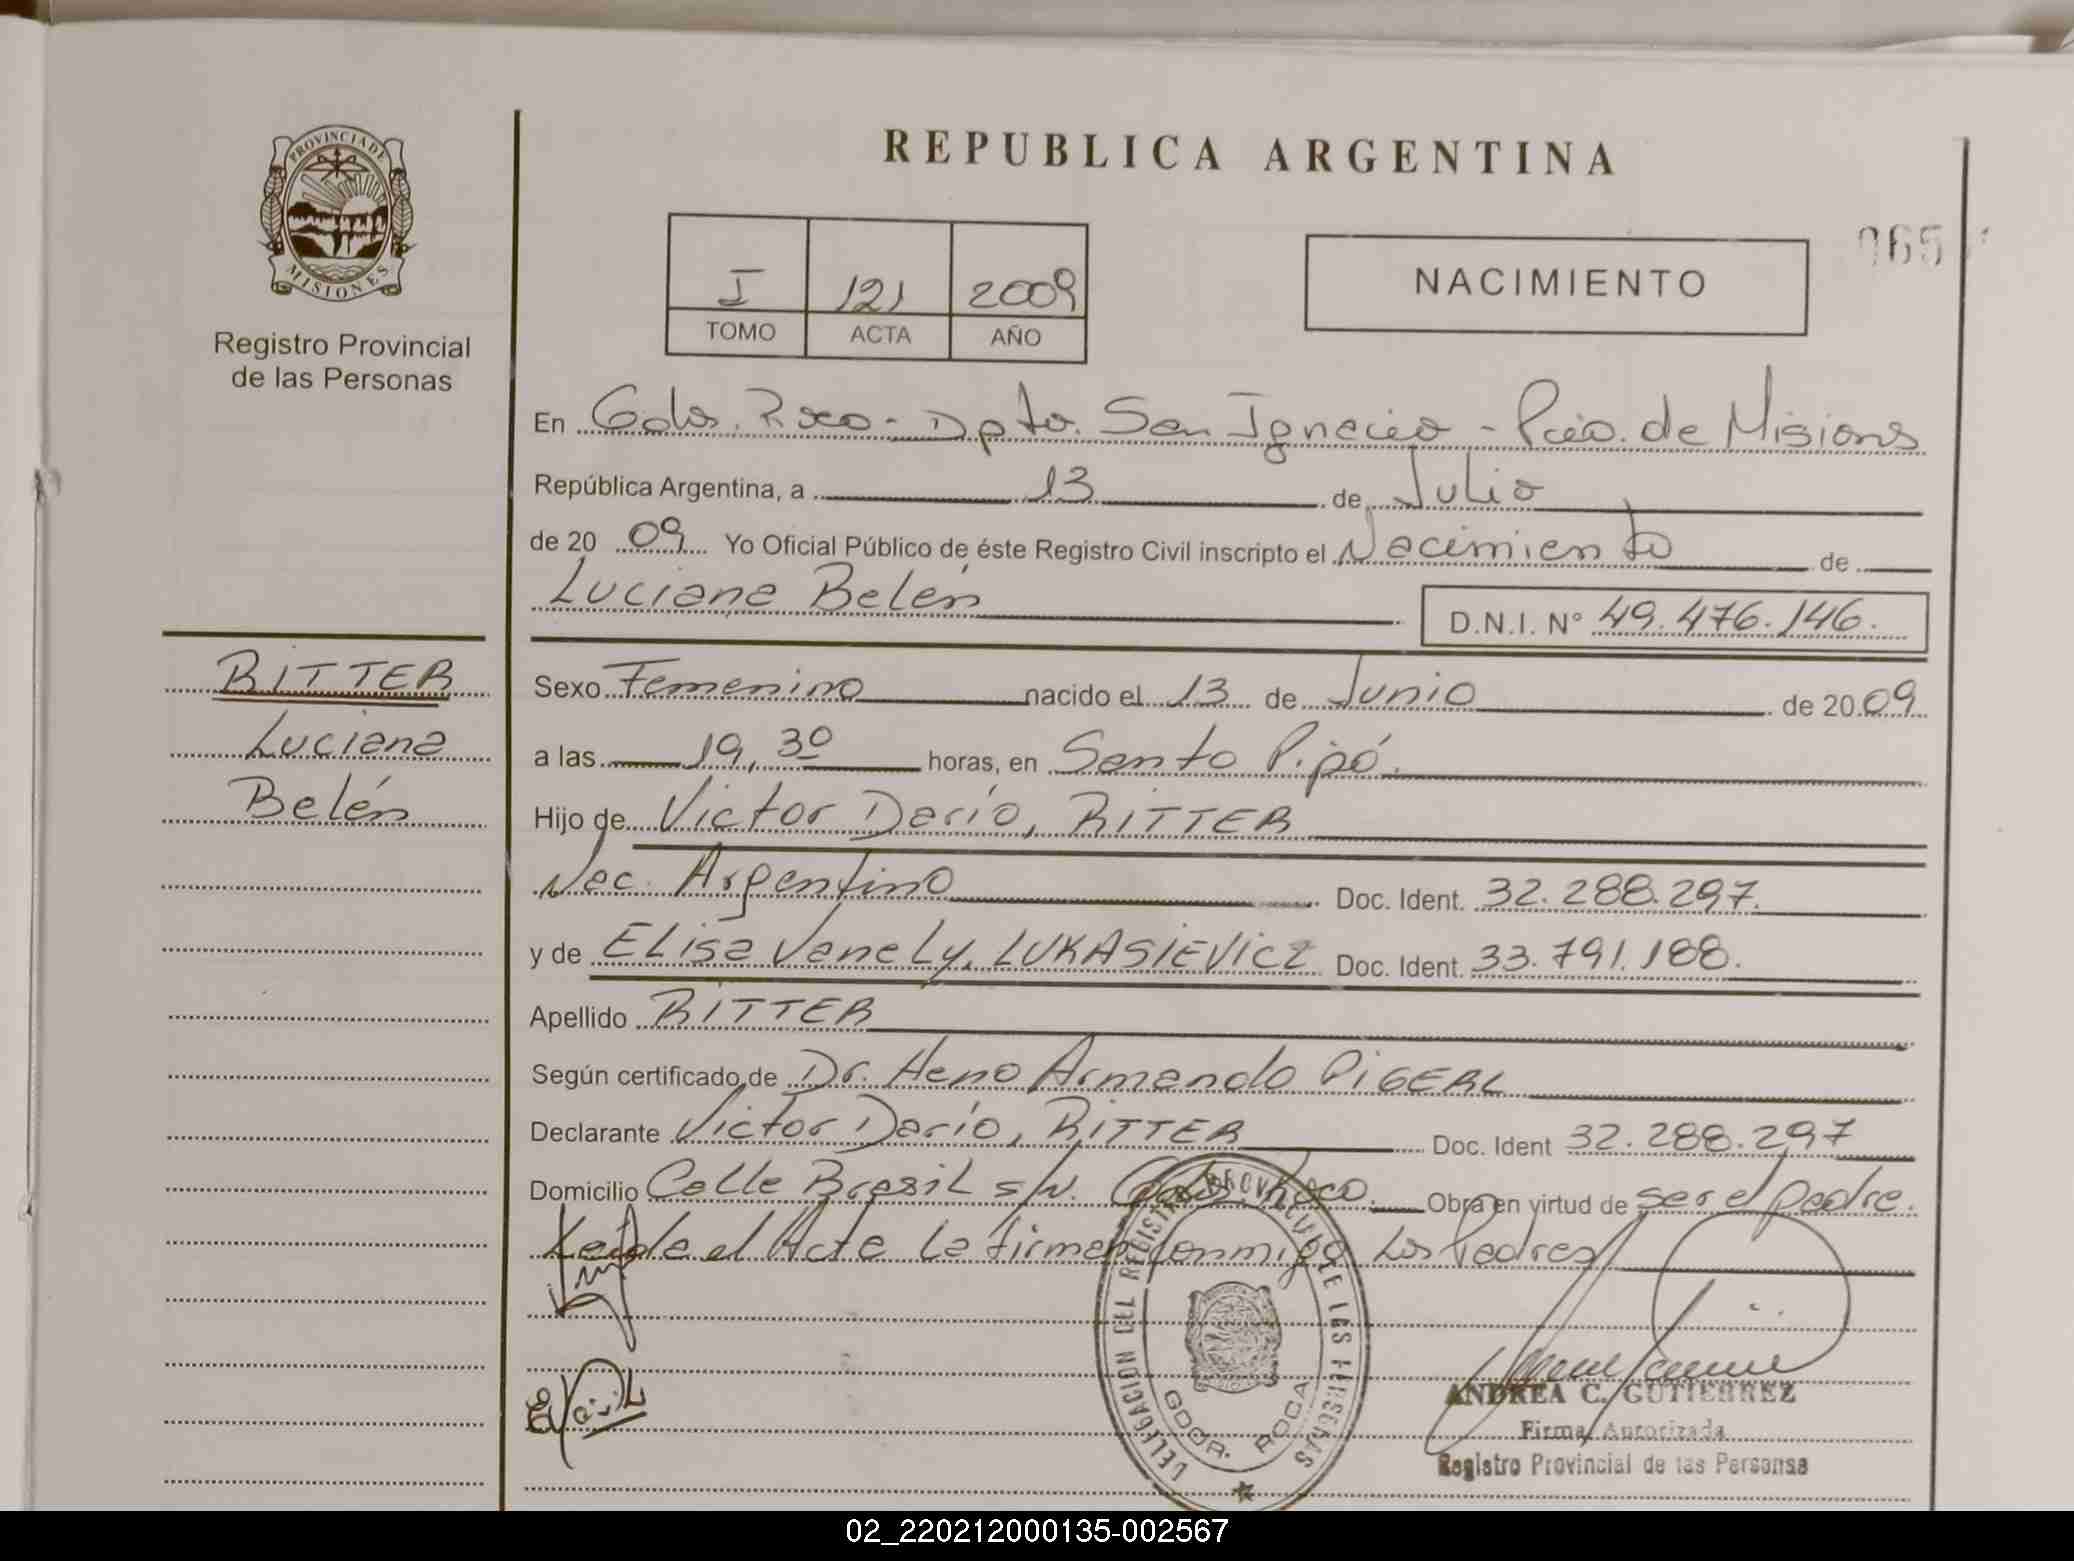 PROVINCIA DE
MISIONES
Registro Provincial
de las Personas
REPUBLICA ARGENTINA
I 121 2009
TOMO ACTA AÑO
NACIMIENTO
065
En Gdor. Roca - Dpto. San Ignacio - Pcia. de Misiones
República Argentina, a 13 de Julio
de 20 09 Yo Oficial Público de éste Registro Civil inscripto el Nacimiento de
Luciana Belén
D.N.I. N° 49.476.146.
RITTER
Luciana
Belén
Sexo Femenino nacido el 13 de Junio de 20 09
a las 19,30 horas, en Santo Pipó.
Hijo de Victor Darío, RITTER
Nac. Argentino Doc. Ident. 32.288.297.
y de Elisa Vanely, LUKASIEVICZ Doc. Ident. 33.791.188.
Apellido RITTER
Según certificado de Dr. Heno Armando PIGERL
Declarante Victor Darío, RITTER Doc. Ident 32.288.297
Domicilio Calle Brasil s/N. Gdor. Roca. Obra en virtud de ser el padre.
Leida el Acta la firman conmigo Los Padres
DELEGACION DEL REGISTRO PROVINCIAL DE LAS PERSONAS
GDOR. ROCA
ANDREA C. GUTIERREZ
Firma Autorizada
Registro Provincial de las Personas
02_220212000135-002567